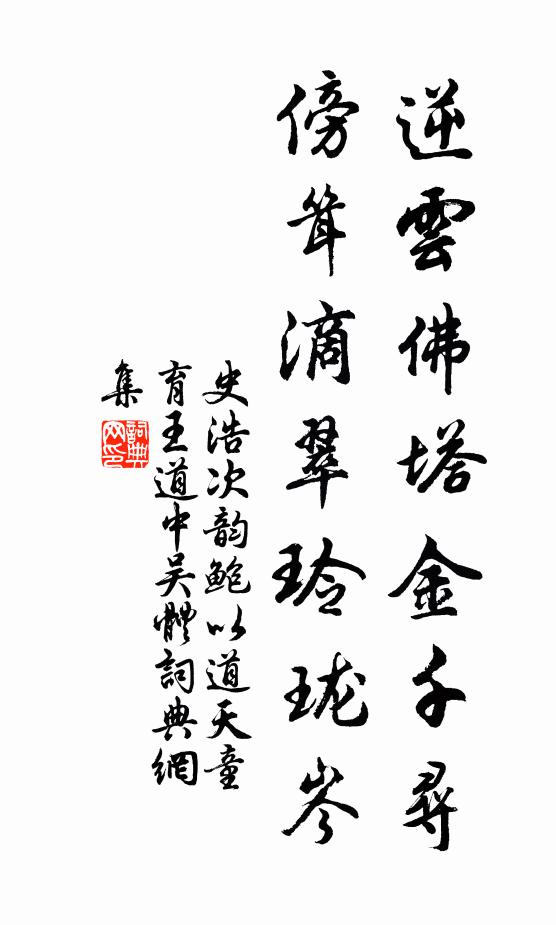 逆雲佛塔金千尋
傍耸滴翠玲珑岑
史浩次韵鲍以道天童
育王道中吴體詞典網
集
詞典網印